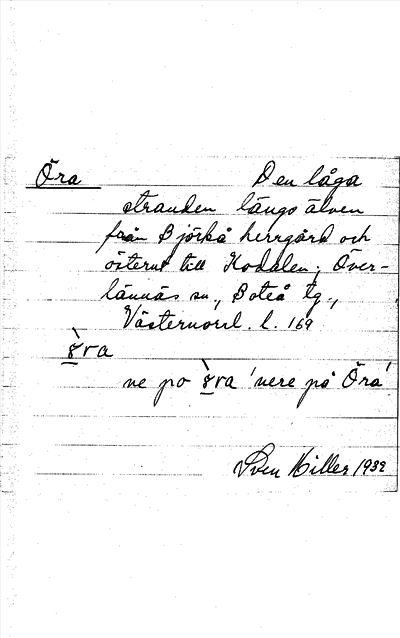 Öra Den låga
stranden längs älven
från Björkå herrgård och
österut till Kodalen; Över-
lännäs sn., Boteå tg.,
Västernorrl. l. 169
ȣ̀ra
ne po ȣ̀ra 'nere på Öra'
Sven Hiller 1932